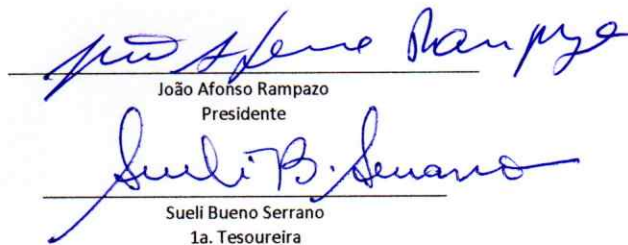 João Afonso Rampazo
João Afonso Rampazo
Presidente
Sueli B. Serrano
Sueli Bueno Serrano
1a. Tesoureira